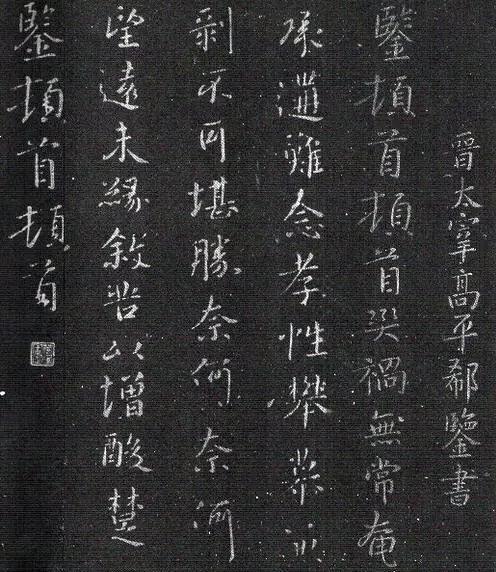 晉太宰高平郗鑒書
鑒頓首頓首災禍無常奄
承遘難念孝性攀慕
剥不可堪勝奈何奈何
望遠未緣敘苦以增酸楚
鑒頓首頓首